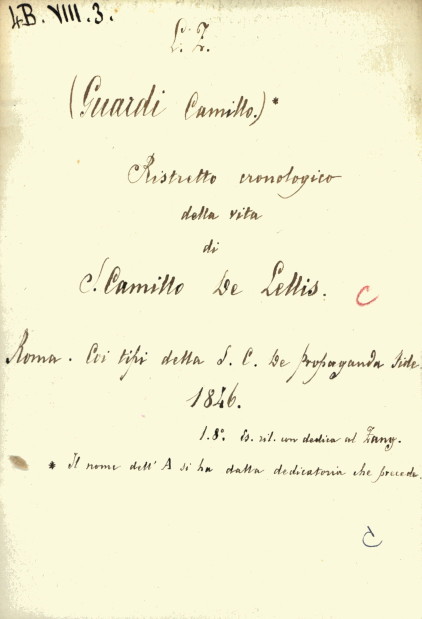 4B. VIII. 3.
L. Z.
(Guardi Camillo.)*
Ristretto cronologico
della vita
di
S. Camillo De Lellis.
C
Roma. Coi tipi della S. C. De Propaganda Fide
1846.
1. 8°. Es. ril. con dedica al Zany.
* Il nome dell' A si ha dalla dedicatoria che precede.
C